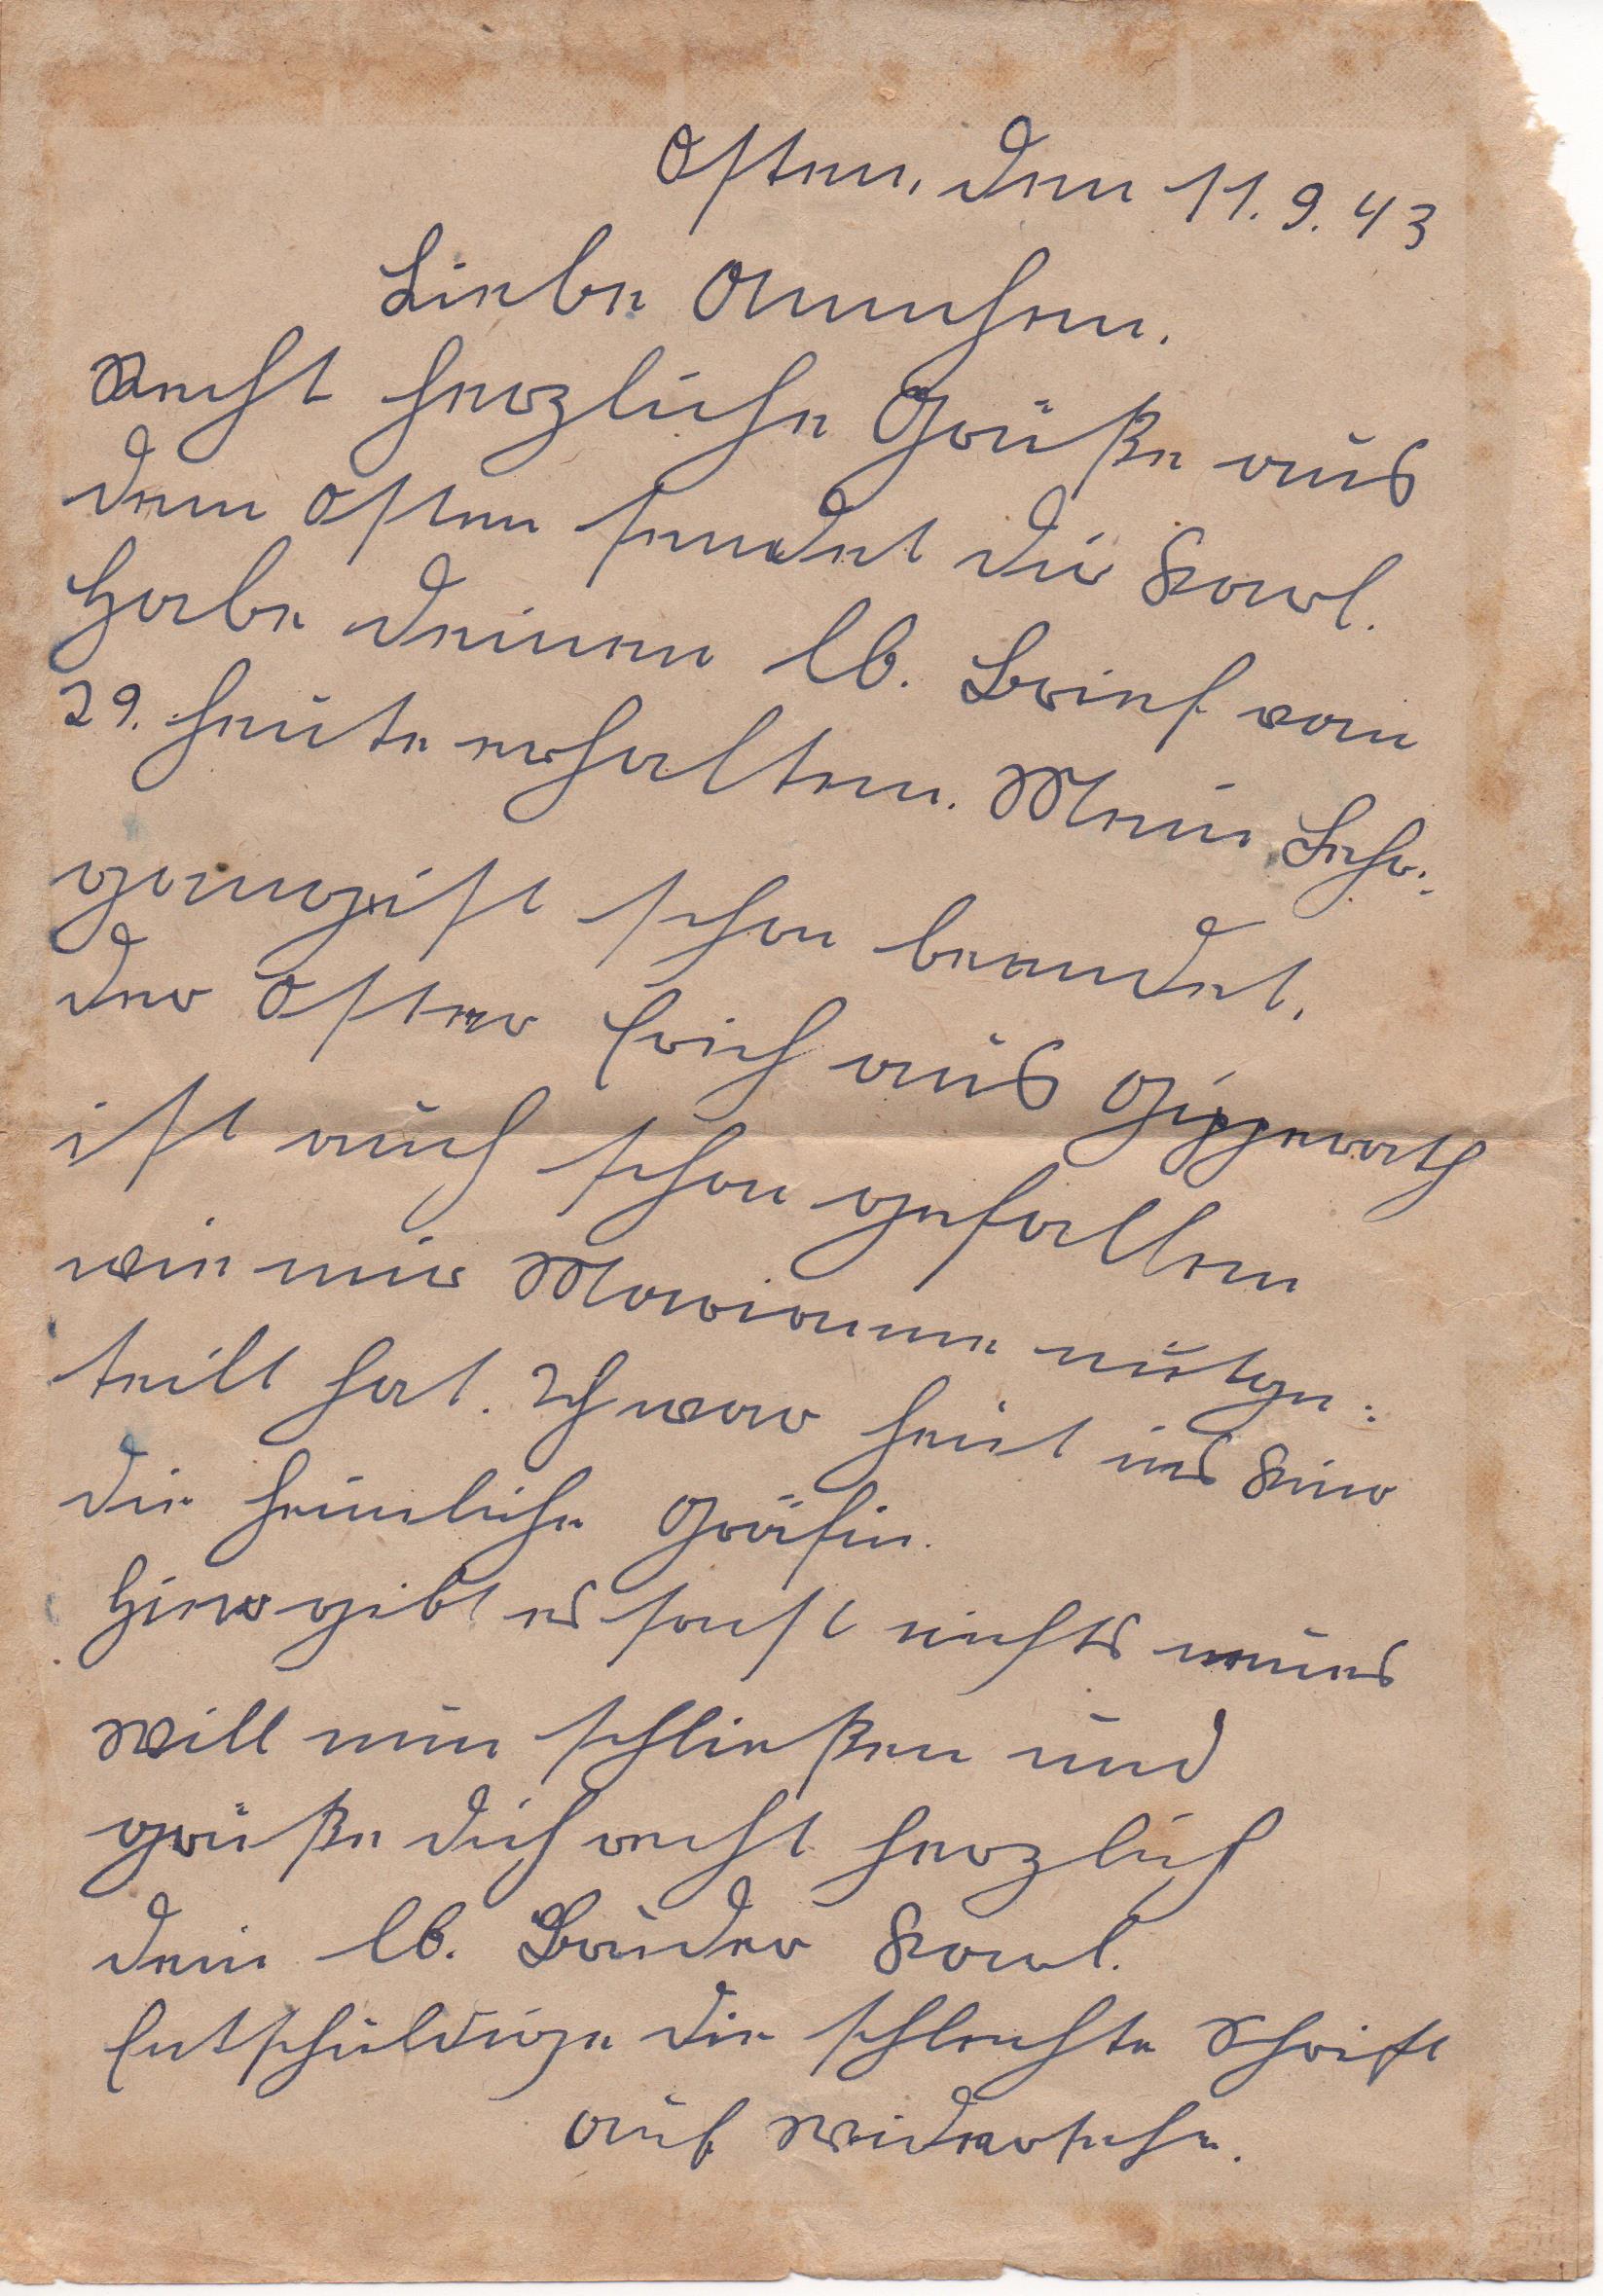 Osten, den 11.9.43
Liebe Annchen.
Recht herzliche Grüße aus
dem Osten sendet dir Karl.
Habe deinen lb. Brief vom
29. heute erhalten. Mein Lehr-
gang ist schon beendet,
der Oster Erich aus Giggerath
ist auch schon gefallen
wie mir Marianne mitge-
teilt hat. Ich war heut ins Kino
die heimliche Gräfin.
Hier gibt es sonst nichts neues
will nun schließen und
grüße dich recht herzlich
dein lb. Bruder Karl.
Entschuldige die schlechte Schrift
auf Widersehe.